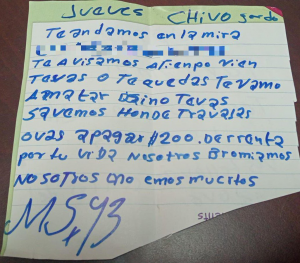 Jueves CHIVO gordo
Te andamos en la mira
Te Avisamos Atienpo vien
Tevas O Te quedas Te vamo
Amatar Deino Tevas
Savemos Honde Travajas
Ovas apagar $200. De rranta
por tu vida Nosotros Bromiamos
NOSOTROS no emos muertos